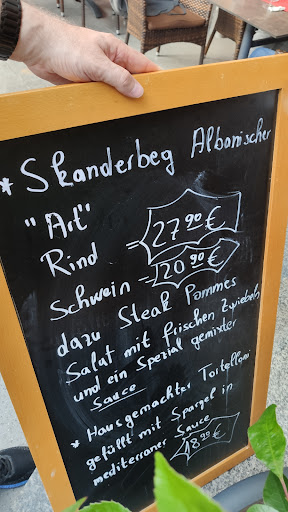 * Skanderbeg Albanischer
"Art"
Rind = 27.90 €
Schwein = 20.90 €
dazu Steak Pommes
Salat mit frischen Zwiebeln
und ein Spezial gemixter
Sauce
* Hausgemachter Tortelloni
gefällt mit Spargel in
mediterraner Sauce
18.90 €